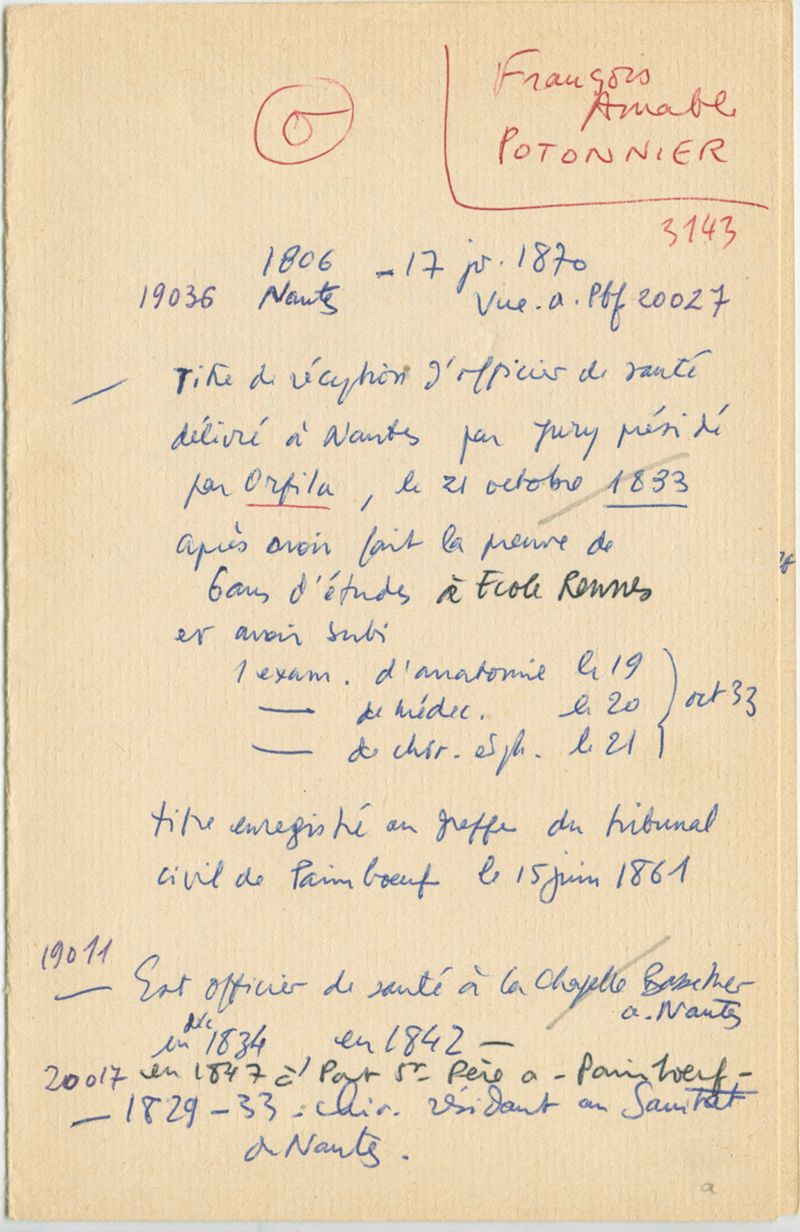 François
Amable
POTONNIER
3143
1806 - 17 jr. 1870
19036 Nantes Vue. a. Pbf 20027
Titre de réception d'officier de santé
délivré à Nantes par Jury présidé
par Orfila, le 21 octobre 1833
après avoir fait la preuve de
6 ans d'études à Ecole Rennes
et avoir subi
1 exam. d'anatomie le 19
— de médec. le 20 oct 33
— de chir. et ph. le 21
titre enregistré au greffe du tribunal
civil de Paimboeuf le 15 juin 1861
19011
— Est officier de santé à la Chapelle Basse Mer
a. Nantes
en déc 1834 en 1842 —
20017 en 1847 à Port St Père a - Paimboeuf -
— 1829-33 : chir. résidant au Sanitat
de Nantes.